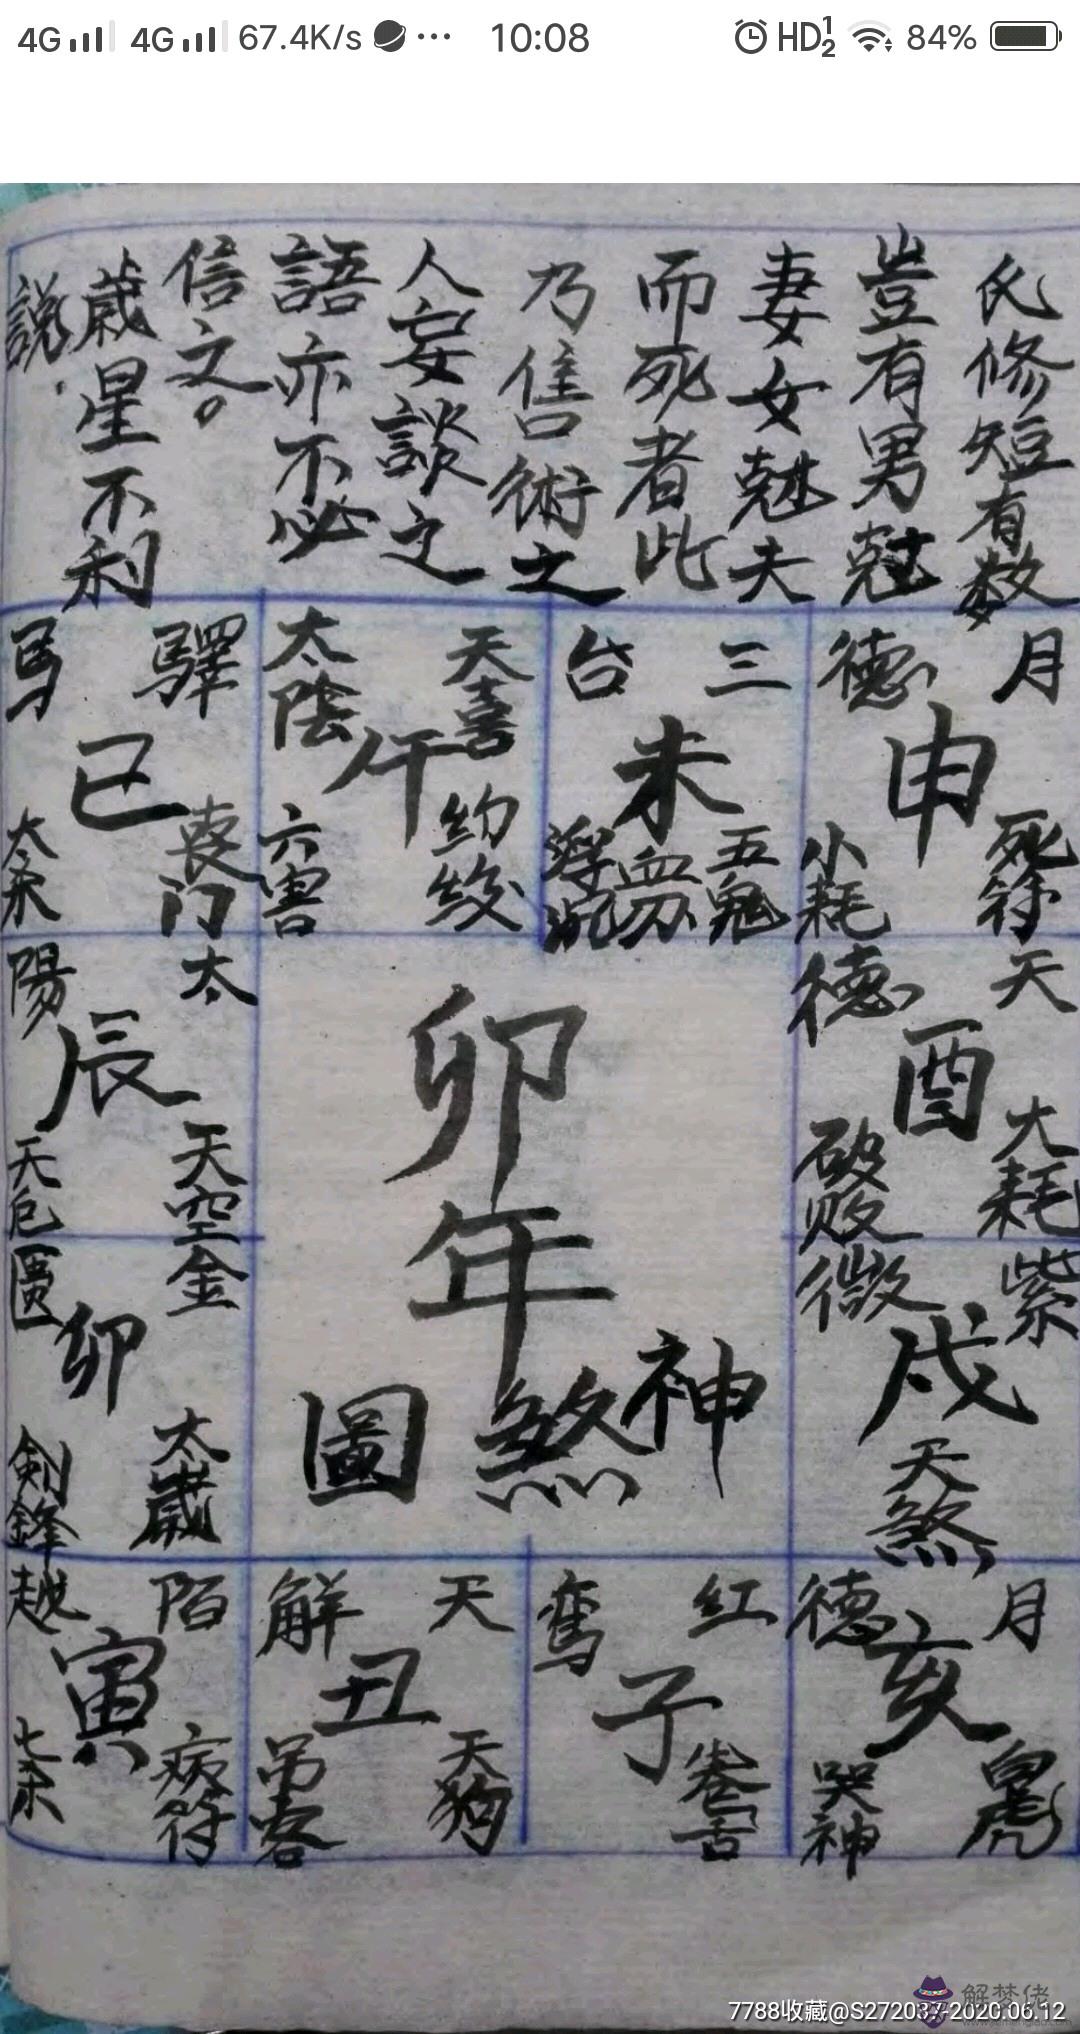 4G 4G 67.4K/s ··· 10:08 HD 1 2 84%
氏修短有数
豈有男尅
妻女尅夫
而死者此
乃售術之
人妄談之
語亦不必
信之。
歲星不利
說.
月德
申
死符
小耗
三台
未
五鬼
天喜
太陰
午
六害
驿馬
巳
喪门
天德
酉
大耗
破敗
太陽
辰
天空
紫微
戌
天煞
金匱
卯
太歲
劍鋒
卯年
神煞圖
月德
亥
白虎
哭神
红鸾
子
卷舌
天解
丑
天狗
吊客
陌越
寅
病符
7788收藏@S272037-2020.06.12
解梦佬